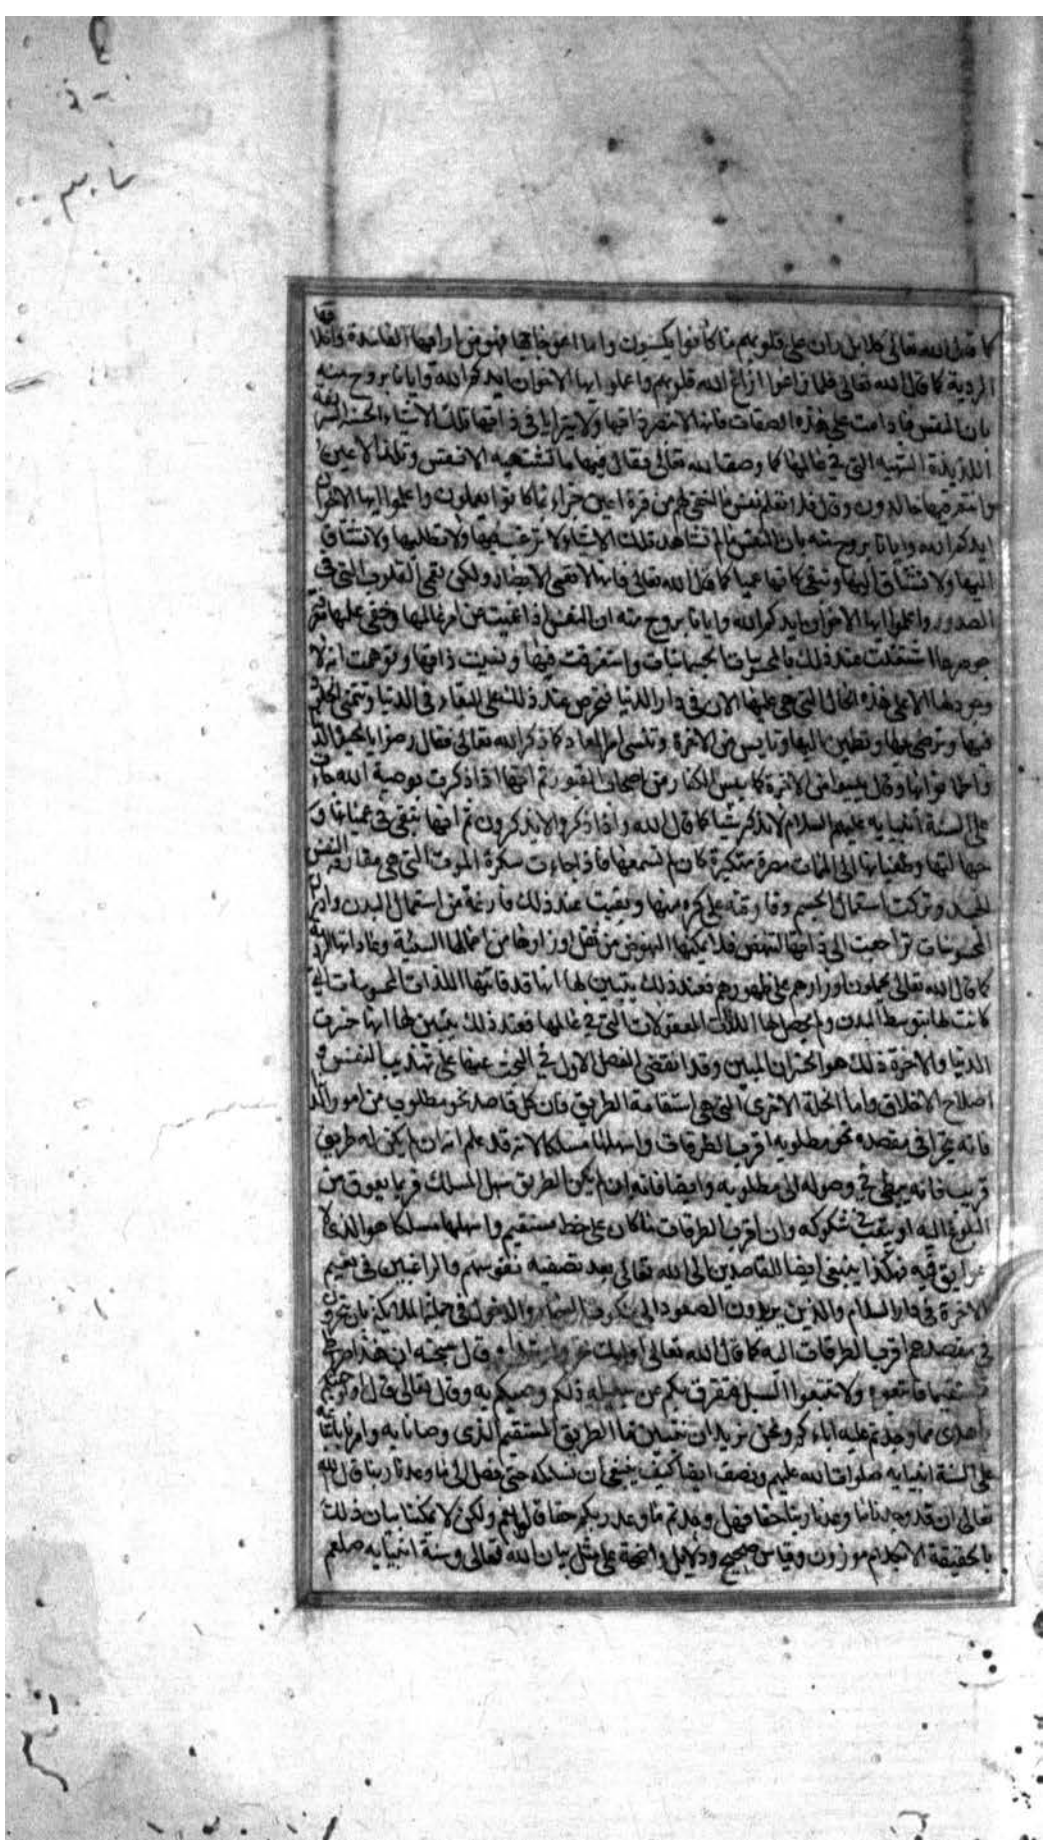 كما قال الله تعالى كلا بل ران على قلوبهم ما كانوا يكسبون واما اعوجاجها فهو من ارائها الفاسدة واخلاقها
الردية كما قال الله تعالى فلما زاغوا ازاغ الله قلوبهم واعلموا ايها الاخوان ايدكم الله وايانا بروح منه
بان النفس ما دامت على هذه الصفات فانها لا تبصر ذاتها ولا يترايا في ذاتها تلك الاشياء الحسنة الشريفة
اللذيذة الشهية التي في عالمها كما وصفها الله تعالى فقال فيها ما تشتهيه الانفس وتلذ الاعين
وانتم فيها خالدون وقال فلا تعلم نفس ما اخفي لهم من قرة اعين جزاء بما كانوا يعملون واعلموا ايها الاخوان
ايدكم الله وايانا بروح منه بان النفس ما لم تشاهد تلك الاشياء لا ترغب فيها ولا تطلبها ولا تشتاق
اليها ولا تشتاق اليها وتبقى كانها عميا كما قال الله تعالى فانها لا تعمى الابصار ولكن تعمى القلوب التي في
الصدور واعلموا ايها الاخوان ايدكم الله وايانا بروح منه ان النفس اذا عميت عن امر عالمها وخفي عليها شر
جوهرها اشتغلت عند ذلك بالمحسوسات الجسمانيات واستغرقت فيها ونسيت ذاتها وتوهمت انه لا
وجود لها الا على هذه الحال التي هي عليها الان في دار الدنيا فتحرص عند ذلك على البقاء في الدنيا وتتمنى الخلود
فيها وترضى بها وتطمئن اليها وتايس من الاخرة وتنسى امر المعاد كما ذكر الله تعالى فقال رضوا بالحيوة الدنيا
واطمانوا بها وقال يئسوا من الاخرة كما يئس الكفار من اصحاب القبور ثم انها اذا ذكرت بوصية الله
على السنة انبيايه عليهم السلام لا تذكر شيا كما قال الله واذا ذكروا لا يذكرون ثم انها تبقى في عمايتها و
جهالتها وطغيانها الى الممات مصرة متكبرة كان لم تسمعها فاذا جاءت سكرة الموت التي هي مفارقة النفس
الجسد وتركت استعمال الجسم وفارقته على كره منها وبقيت عند ذلك فارغة من استعمال البدن وادراك
المحسوسات تراجعت الى ذاتها لتنهض فلا يمكنها النهوض من ثقل اوزارها من اعمالها السيئة وعاداتها الردية
كما قال الله تعالى يحملون اوزارهم على ظهورهم فعند ذلك يتبين لها انها قد فاتتها اللذات المحسوسات التي
كانت لها بتوسط البدن ولم يحصل لها اللذات المعقولات التي في عالمها فعند ذلك يتبين لها انها خسرت
الدنيا والاخرة ذلك هو الخسران المبين وقد انقضى الفصل الاول في البحث عنها على تهذيب النفس و
اصلاح الاخلاق واما الخلة الاخرى التي هي استقامة الطريق فان كل قاصد نحو مطلوب من امور الدنيا
فانه يتحرى في مقصده نحو مطلوبه اقرب الطرقات واسهلها مسلكا لانه قد علم انه ان لم يكن له طريق
قريب فانه يبطي في وصوله الى مطلوبه وايضا فانه ان لم يكن الطريق سهل المسلك فربما يعوق من
البلوغ اليه او يبقى في شكوكه وان اقرب الطرقات ما كان على خط مستقيم واسهلها مسلكا هو الذي لا
عوايق فيه فهكذا ينبغي ايضا للقاصدين الى الله تعالى بعد تصفية نفوسهم والراغبين في نعيم
الاخرة في دار السلام والذين يريدون الصعود الى ملكوت السماء والدخول في جملة الملايكة بان يتحروا
في مقصدهم اقرب الطرقات اليه كما قال الله تعالى اولئك تحروا رشدا وقال سبحنه ان هذا صراطي
مستقيما فاتبعوه ولا تتبعوا السبل فتفرق بكم عن سبيله ذلكم وصيكم به وقال تعالى قل اولو جئتكم
باهدى مما وجدتم عليه اباءكم ونحن نريد ان نبين ما الطريق المستقيم الذي وصانا به وامرنا باتباعه
على السنة انبيايه صلوات الله عليهم ونصف ايضا كيف ينبغي ان نسلكه حتى نصل الى ما وعدنا ربنا قال الله
تعالى ان قد وجدنا ما وعدنا ربنا حقا فهل وجدتم ما وعد ربكم حقا قالوا نعم ولكن لا يمكننا بيان ذلك
بالحقيقة الا بكلام موزون وقياس صحيح ودلايل واضحة على مثل بيان الله تعالى وسنة انبيايه صلعم